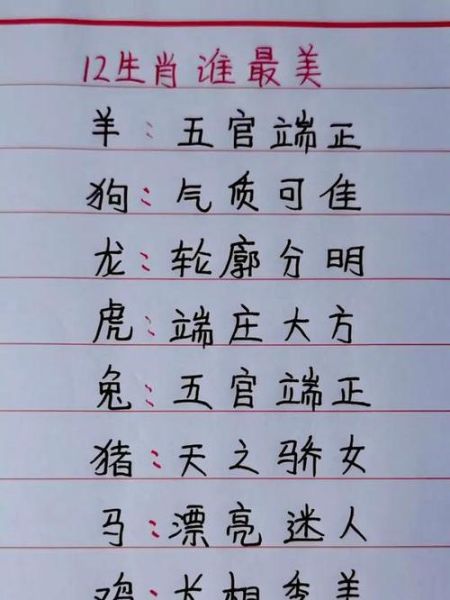 12生肖谁最美
羊:五官端正
狗:气质可佳
龙:轮廓分明
虎:端庄大方
兔:五官端正
猪:天之骄女
马:漂亮迷人
鸡:长相秀美